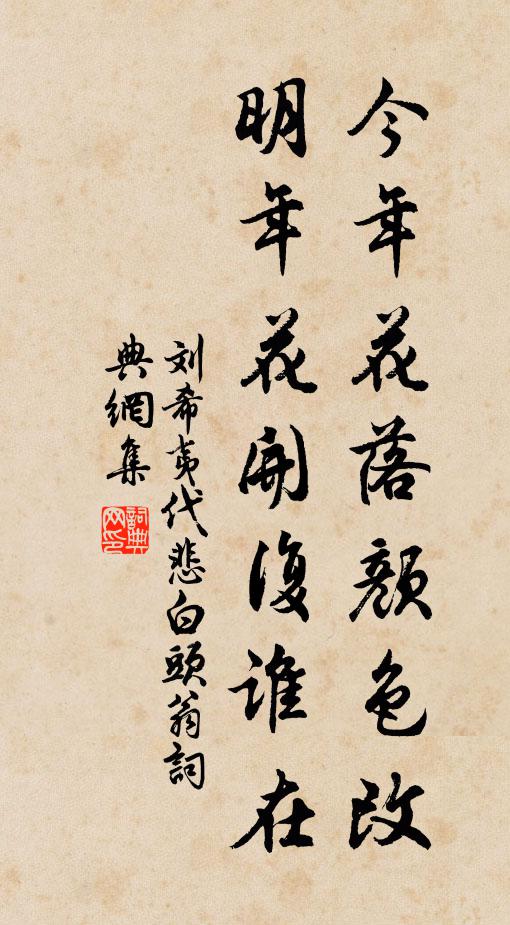 今年花落颜色改
明年花開復誰在
刘希夷代悲白頭翁詞
典網集
詞典网印